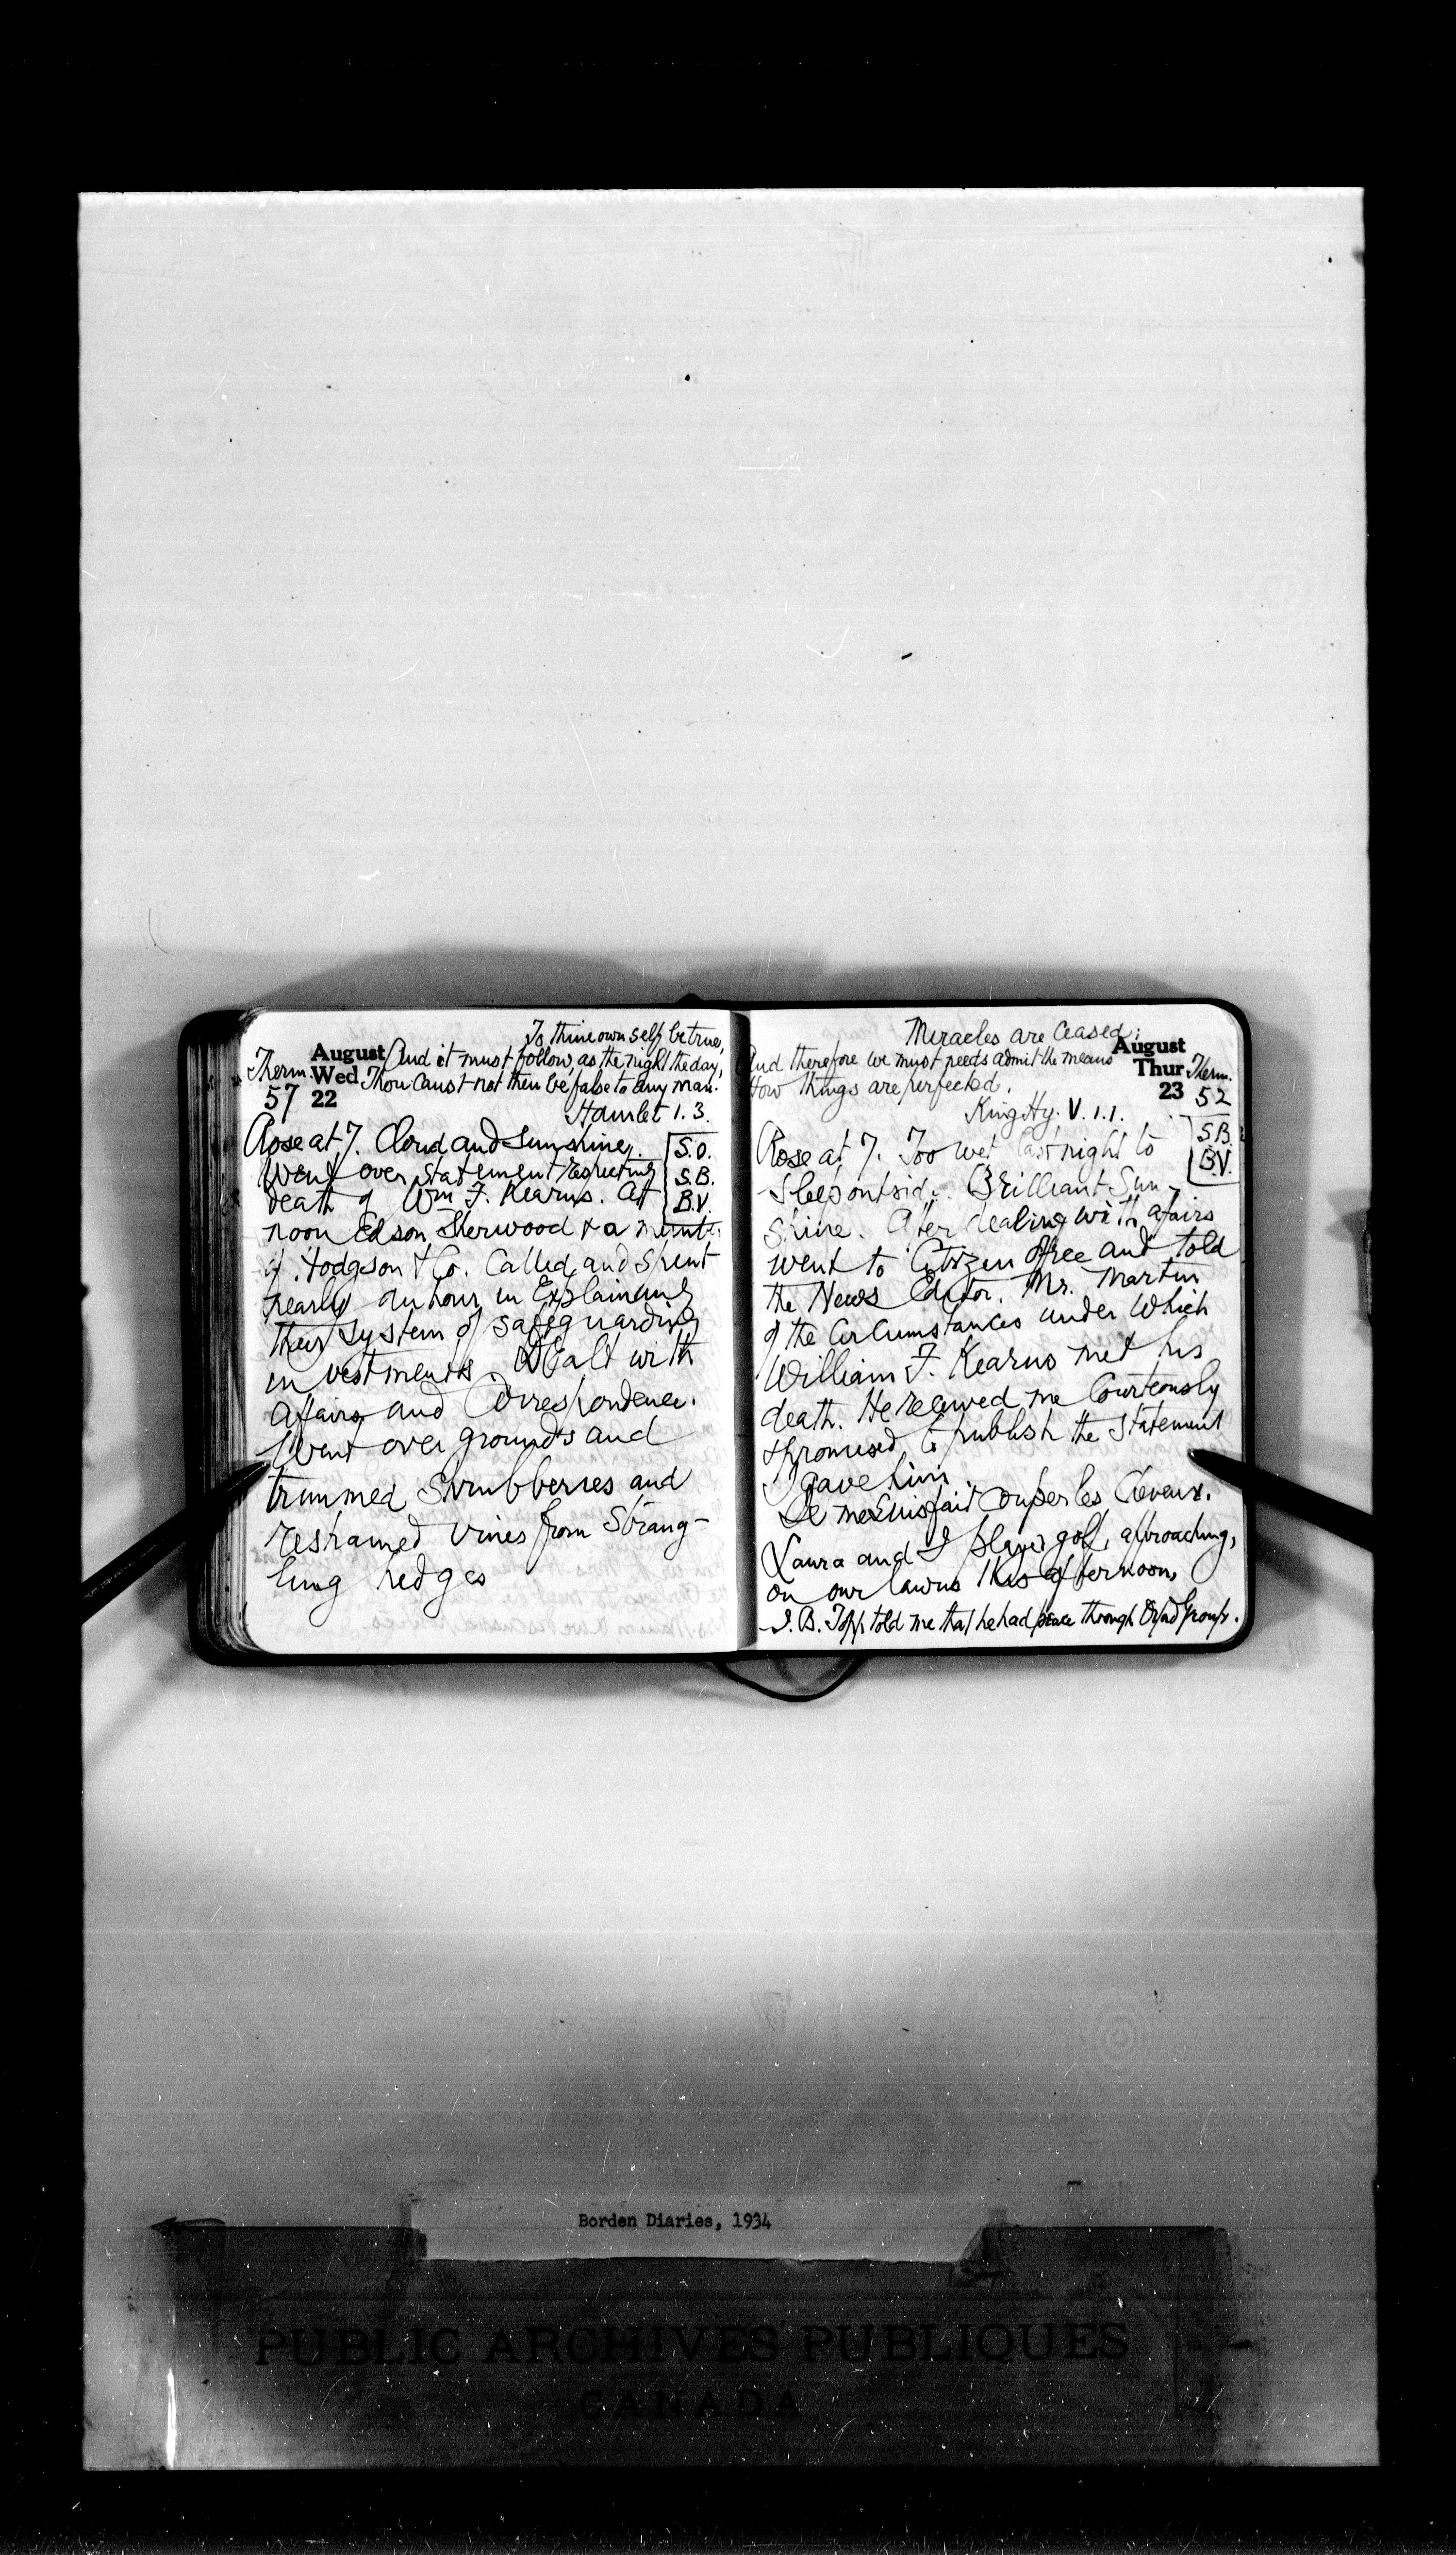 To thine own self be true,
August And it must follow, as the night the day,
Therm. Wed Thou canst not then be false to any man.
57 22
Hamlet 1. 3.
Rose at 7. Cloud and sunshine. S.O.
Went over statement respecting S.B.
death of Wm F. Kearns. At B.V.
noon Edson Sherwood & a
of Hodgson & Co. called and spent
nearly an hour in explaining
their system of safeguarding
investments. Dealt with
affairs and correspondence.
Went over grounds and
trimmed shrubberies and
restrained vines from strang-
ling hedges
Miracles are ceased;
August
And therefore we must needs admit the means
Thur Therm.
How things are perfected.
23 52
King Hy. V. 1.1.
S.B.
B.V.
Rose at 7. Too wet last night to
sleep outside. Brilliant Sun-
shine. After dealing with affairs
went to Citizen office and told
the News Editor, Mr. Martin
of the circumstances under which
William F. Kearns met his
death. He received me courteously
& promised to publish the statement
I gave him.
Je me suis fait couper les cheveux.
Laura and I played golf, approaching,
on our lawns this afternoon.
J. B. Topp told me that he had peace through Oxford Group.
Borden Diaries, 1934
PUBLIC ARCHIVES PUBLIQUES
CANADA